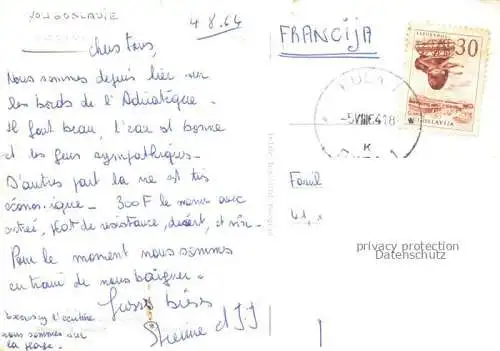 YOUGOSLAVIE
4 8.64
Chers tous,
Nous sommes depuis hier sur
les bords de l'Adriatique.
Il fait beau, l'eau est bonne
et les gens sympathiques.
D'autres part la vie est très
économique - 300F le menu avec
entrée, plat de resistance, désert, et vin.
Pour le moment nous sommes
en train de nous baigner.
Gross biss
et J.J
Excusez l'écriture
nous sommes sur
la plage.
FRANCIJA
30
JUGOSLAVIJA
PULA 1
-5VIII6418
K
Famil
privacy protection
Datenschutz